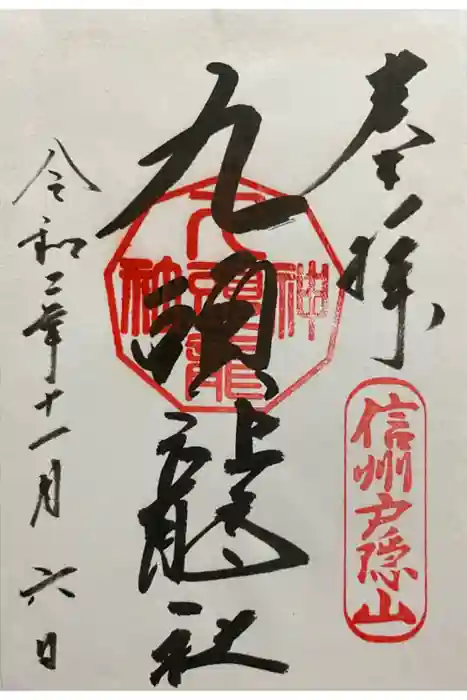 奉拝
信州戸隠山
九頭龍社
九頭龍
神社
令和三年十一月六日